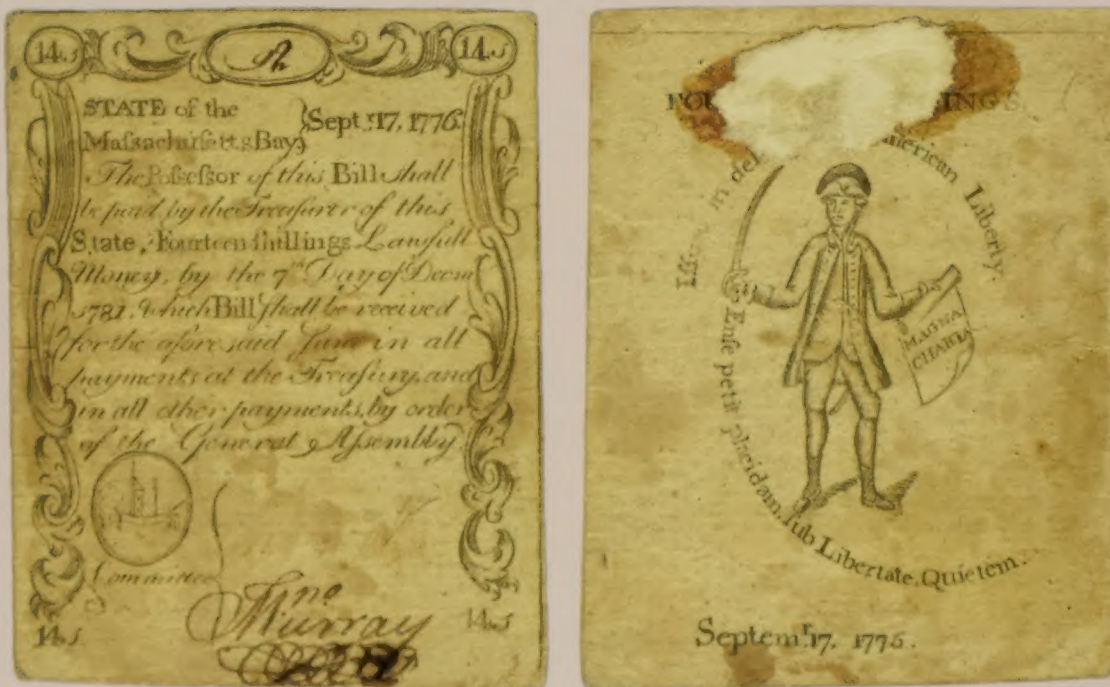 14.s 14.s
STATE of the
Maſsachuſetts Bay} Sept.r 17, 1776.
The Poſseſsor of this Bill shall
be paid by the Treaſurer of this
State, Fourteen ſhillings Lawfull
Money, by the 7th Day of Decem
1781. which Bill ſhall be received
for the aforesaid Sum in all
payments at the Treaſury, and
in all other payments, by order
of the General Aſsembly.
Committee
Jno
Murray
14.s 14.s
FOU INGS
in American Liberty.
MAGNA
CHARTA
Enſe petit placidam, ſub Libertate, Quietem.
Septem.r 17. 1776.